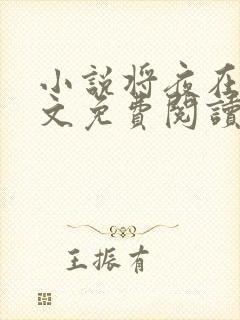 小說将夜在
文免費閱讀
王振有